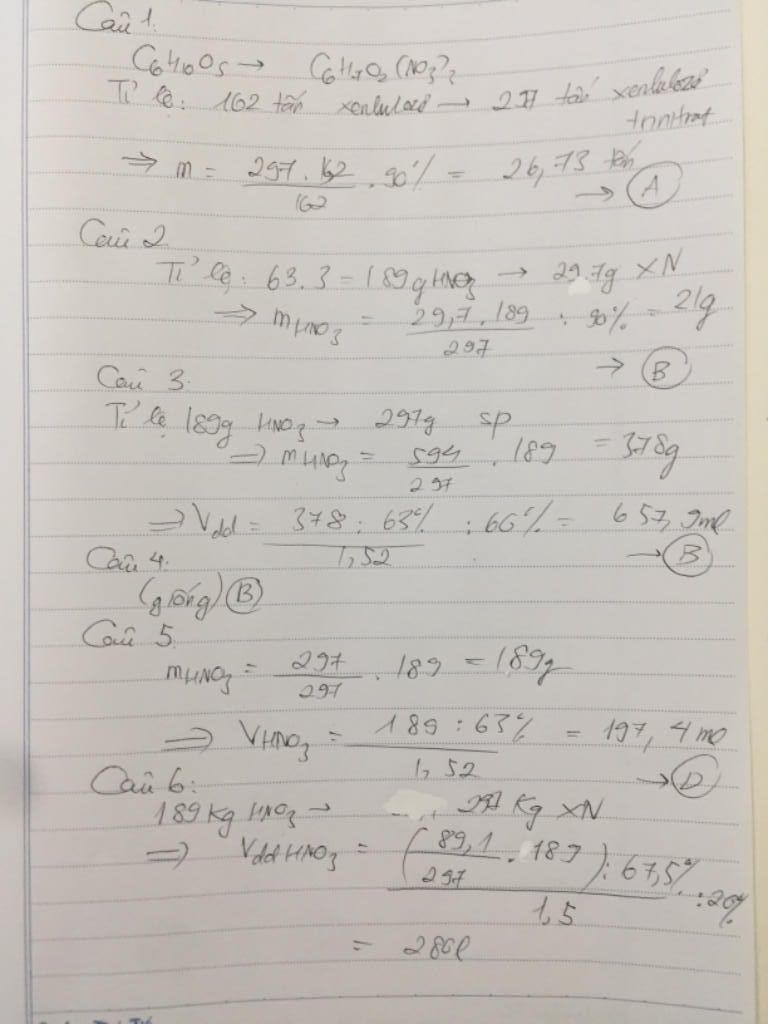 Câu 1.
C6H10O5 → C6H7O2(NO3)3
Tỉ lệ: 162 tấn xenlulozơ → 297 tấn xenlulozơ
trinitrat
⇒ m = 297 . 16,2 / 162 . 90% = 26,73 tấn
→ A
Câu 2
Tỉ lệ: 63.3 = 189g HNO3 → 29.7g XN
⇒ mHNO3 = 29,7 . 189 / 297 : 90% = 21g
→ B
Câu 3.
Tỉ lệ 189g HNO3 → 297g sp
⇒ mHNO3 = 594 / 297 . 189 = 378g
⇒ Vdd = 378 : 63% / 1,52 : 60% = 657,9ml
→ B
Câu 4.
(giống) B
Câu 5
mHNO3 = 297 / 297 . 189 = 189g
⇒ VHNO3 = 189 : 63% / 1,52 = 197,4 ml
→ D
Câu 6:
189 Kg HNO3 → 297 Kg XN
⇒ Vdd HNO3 = (89,1 / 297 . 189) : 67,5% / 1,5 : 20%
= 280l